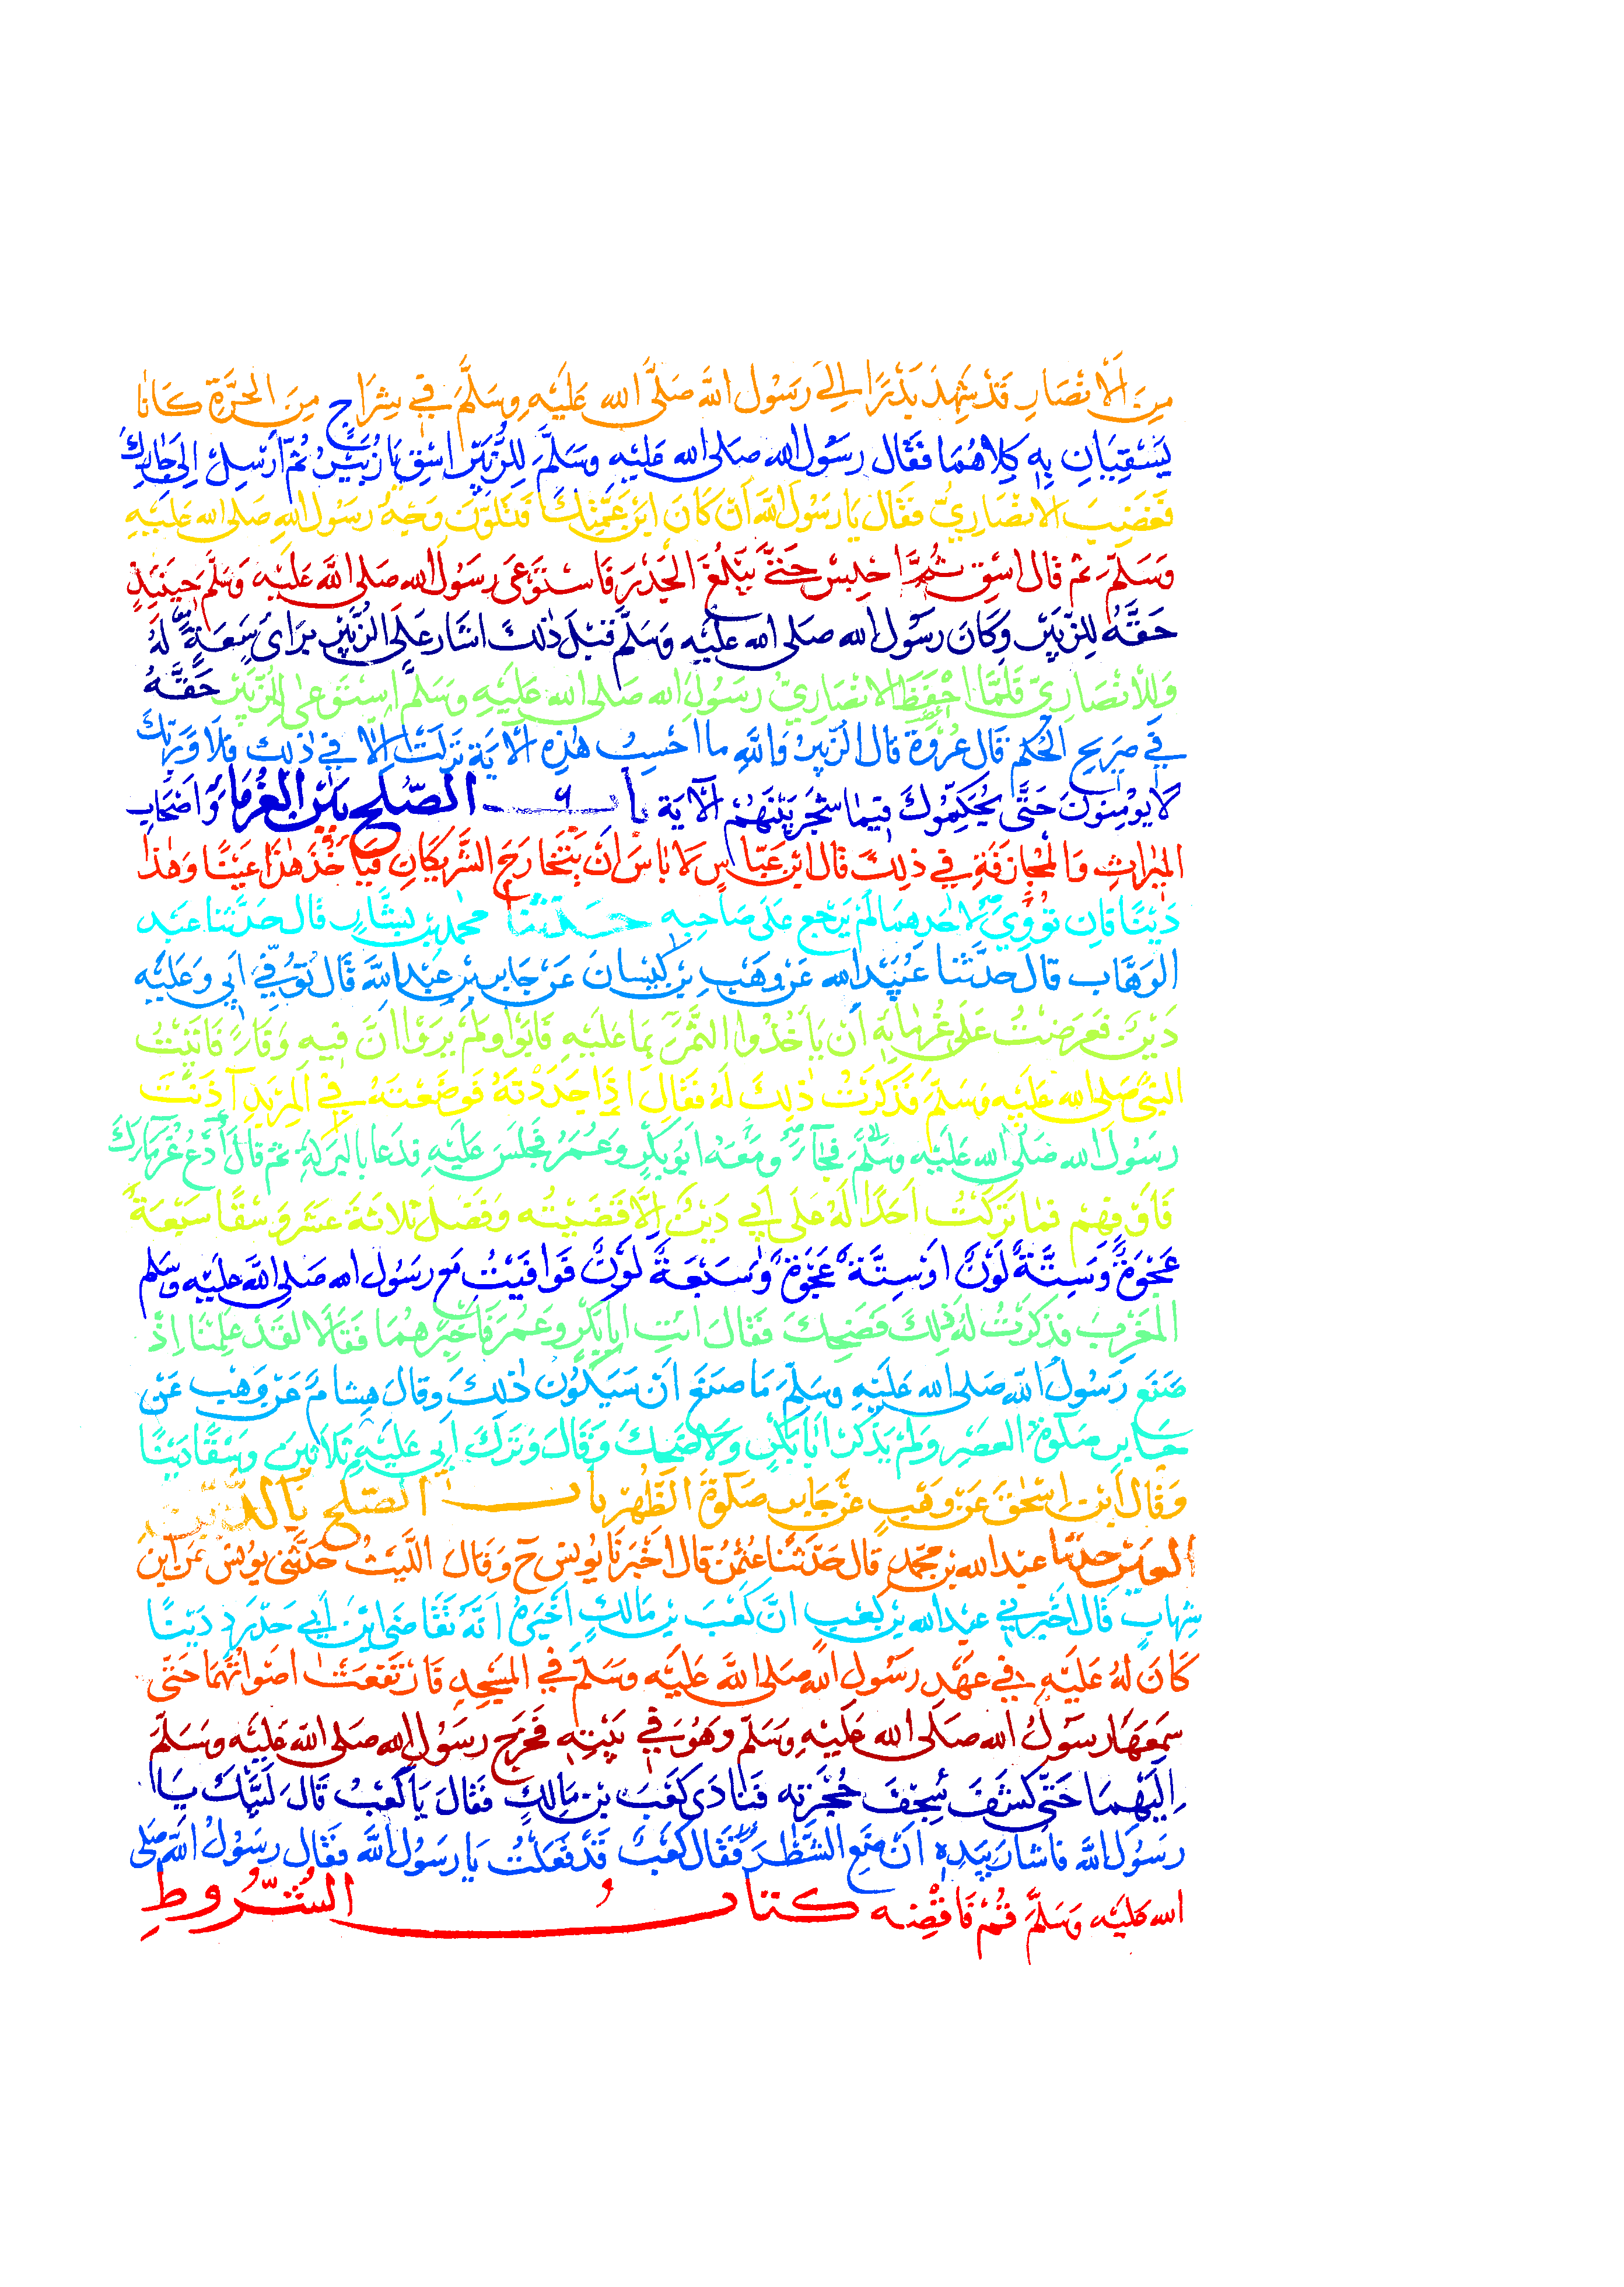 مِنَ الْاَنْصَارِ قَدْ شَهِدَ بَدْرًا اِلٰى رَسُوْلِ اللّٰهِ صَلَّى الله عَلَيْهِ وَسَلَّمَ فِيْ شِرَاجٍ مِنَ الْحَرَّةِ كَانَا
يَسْقِيَانِ بِهٖ كِلَاهُمَا فَقَال رسُوْلُ الله صلى الله عليْهِ وسَلَّمَ لِلزُّبَيْرِ اسْقِ يَا زُبَيْرُ ثُمَّ اَرْسِلْ اِلٰى جَارِكَ
فَغَضِبَ الانْصَارِيُّ فقَال يَا رَسُوْلَ اللَّهِ اَنْ كَانَ ابْنَ عَمَّتِكَ فَتَلَوَّنَ وَجْهُ رَسُوْل اللهِ صَلى الله عَليْهِ
وَسَلَّمَ ثم قال اسْقِ ثُمَّ احْبِسْ حَتّٰى يَبْلُغَ الْجَدْرَ فَاسْتَوْعىَ رسَوُلُ الله صَلى اللَّهُ عَلَيْهِ وَسَلَّمَ حِينَئِذٍ
حَقَّهُ لِلزُّبَيْرِ وَكَانَ رسُوْل الله صلى الله عَلَيْهِ وَسَلَّمَ قَبْلَ ذٰلِكَ اشَار عَلَى الزُّبَيْرِ بِرَاىٍ سَعَةٍ لَهُ
وَلِلْاَنْصَارِيِّ فَلَمَّا احْفَظَ الانْصَارِيُّ رسَوُلَ الله صَلى الله عَلَيْهِ وَسَلم اسْتَوْعىٰ لِلزُّبَيْرِ حَقَّهُ
فِيْ صَرِيحِ الْحُكْمِ قَال عُرْوَةُ قال الزُّبَيْرُ وَاللَّهِ ما احْسِبُ هٰذِهِ الْاٰيَةَ نَزَلَتْ اِلَّا فِيْ ذٰلِكَ فَلَا وَرَبِّكَ
لَا يُوْمِنُوْنَ حَتّٰى يُحَكِّمُوْكَ فِيْمَا شَجَرَ بَيْنَهُمْ الْاٰيَة بابُ الصُّلْحِ بَيْنَ الْغُرَمَاءِ وَاَصْحَابِ
المِيْرَاثِ وَالْمُجَازَفَةِ فِي ذلِكَ قال ابْن عَبَّاسٍ لَا بَاسَ اَنْ يَتَخَارَجَ الشَّرِيْكَانِ فَيَاْخُذَ هٰذَا عَيْنًا وَهٰذَا
دَيْنًا فَاِن تُوُوِّيَ لِاَحَدِهِمَا لَمْ يَرْجِع عَلَى صَاحِبِهِ حَدَّثَنَا محمد بن بشَّار قال حَدَّثَنا عَبْد
الوَهَّاب قال حَدَّثَنا عُبَيْدُ الله عَنْ وَهَبِ بْنِ كَيْسَانَ عَنْ جَابِرِ بْنِ عَبْد اللَّهِ قَال تُوُفِّيَ اَبِي وَعَلَيْهِ
دَيْنٌ فَعَرَضْتُ عَلى غُرَمَائِهِ اَن يَاْخُذُوْا التَّمْرَ بِمَا عَليْهِ فَاَبَوْا ولَمْ يَرَوْا اَنَّ فِيهِ وَفَاءً فَاَتَيْتُ
النَّبِيَّ صَلى الله عَلَيْهِ وَسَلَّمَ فَذَكَرْتُ ذلِكَ لَهُ فَقَال اِذَا جَدَدْتَهُ فَوَضَعْتَهُ فِي الْمِرْبَدِ آذَنْتَ
رسُوْلَ الله صَلَّى الله عَلَيْهِ وسَلَّمَ فَجَاءَ ومَعَهُ اَبُوْبَكْرٍ وَعُمَرُ فَجَلَسَ عَلَيْهِ فدَعا بِالْبَركَةِ ثُمَّ قَالَ اُدْعُ غُرَمَاءَكَ
فَاَوْفِهِمْ فمَا تَرَكْتُ اَحَدًا لَهُ عَلَى اَبِي دَيْنٌ اِلَّا قَضَيْتُه وَفَضَل ثلاثَةَ عَشَرَ وَسْقًا سَبْعَةٌ
عَجْوَةٌ وَسِتَّةٌ لَوْنٌ اَوْ سِتَّةٌ عَجْوَةٌ وَسَبْعَةٌ لَوْنٌ فَوَافَيْتُ مَع رسُوْلِ الله صَلى اللَّهُ عَلَيْهِ وَسَلم
المَغْرِبَ فذَكَرْتُ لَهُ ذٰلِكَ فَضَحِكَ فَقَال ائْتِ ابَابَكْرٍ وعُمَرَ فَاَخْبِرْهُمَا فَقَالَا لقَدْ عَلِمْنَا اِذْ
صَنَع رَسُوْلُ اللَّهِ صَلى الله عَلَيْهِ وسَلَّمَ مَا صَنَعَ اَنْ سَيَكُوْنُ ذٰلِكَ وقال هِشام عَنْ وَهْب عَنْ
جَابِرٍ صَلٰوةَ العصْرِ وَلَمْ يَذْكُرْ اَبَا بَكْرٍ وَلَا ضَحِكَ وَقَال وَتَرَكَ اَبِي عَلَيْهِ ثَلَاثِيْنَ وَسْقًا دَيْنًا
وَقَال ابْن اِسْحٰقَ عَنْ وَهْبٍ عَنْ جَابِرٍ صَلٰوةَ الظُّهْرِ باب الصُّلْحِ بِالدَّيْنِ
العَيْنِ حدثنا عبْد الله بن مُحَمَّد قال حَدَّثَنَا عُثْمٰنُ قال اَخْبَرَنَا يُونُس ح وَقَال اللَّيْثُ حَدَّثَنِي يُوْنُس عَن ابْنِ
شِهَابٍ قَال اَخْبَرَنِيْ عبْد الله بْن كَعْبٍ اَنَّ كَعْبَ بْن مَالِكٍ اَخْبَرَهُ اَنَّهُ تَقَاضَى ابْنَ اَبِي حَدْرَدٍ دَيْنًا
كَانَ لَهُ عَلَيْهِ فِي عَهْدِ رسُوْل اللهِ صلى اللهُ عَلَيْهِ وَسَلَّمَ فِي المَسْجِدِ فَارْتَفَعَتْ اَصْوَاتُهُمَا حَتّٰى
سَمِعَهَا رسَوُلُ الله صَلَى الله عَلَيْهِ وَسَلَّمَ وَهُوَ فِي بَيْتِهِ فَخَرَجَ رسُوْل الله صلى اللهُ عَلَيْهِ وَسَلَّمَ
اِلَيْهِمَا حَتّٰى كَشَفَ سِجْفَ حُجْرَتِه فَنَادَى كَعْبَ بْن مَالِكٍ فَقَالَ يَا كَعْبُ قَال لَبَّيْكَ يَا
رسُوْلَ اللَّهِ فَاَشَارَ بِيَدِهِ اَنْ ضَعِ الشَّطْرَ فَقَال كَعْبٌ قَدْ فَعَلْتُ يَا رسُوْل اللَّهِ فقَال رسُوْلُ اللَّهِ صَلى
الله عَلَيْهِ وَسَلَّمَ قُمْ فَاقْضِه كتابُ الشُّرُوطِ